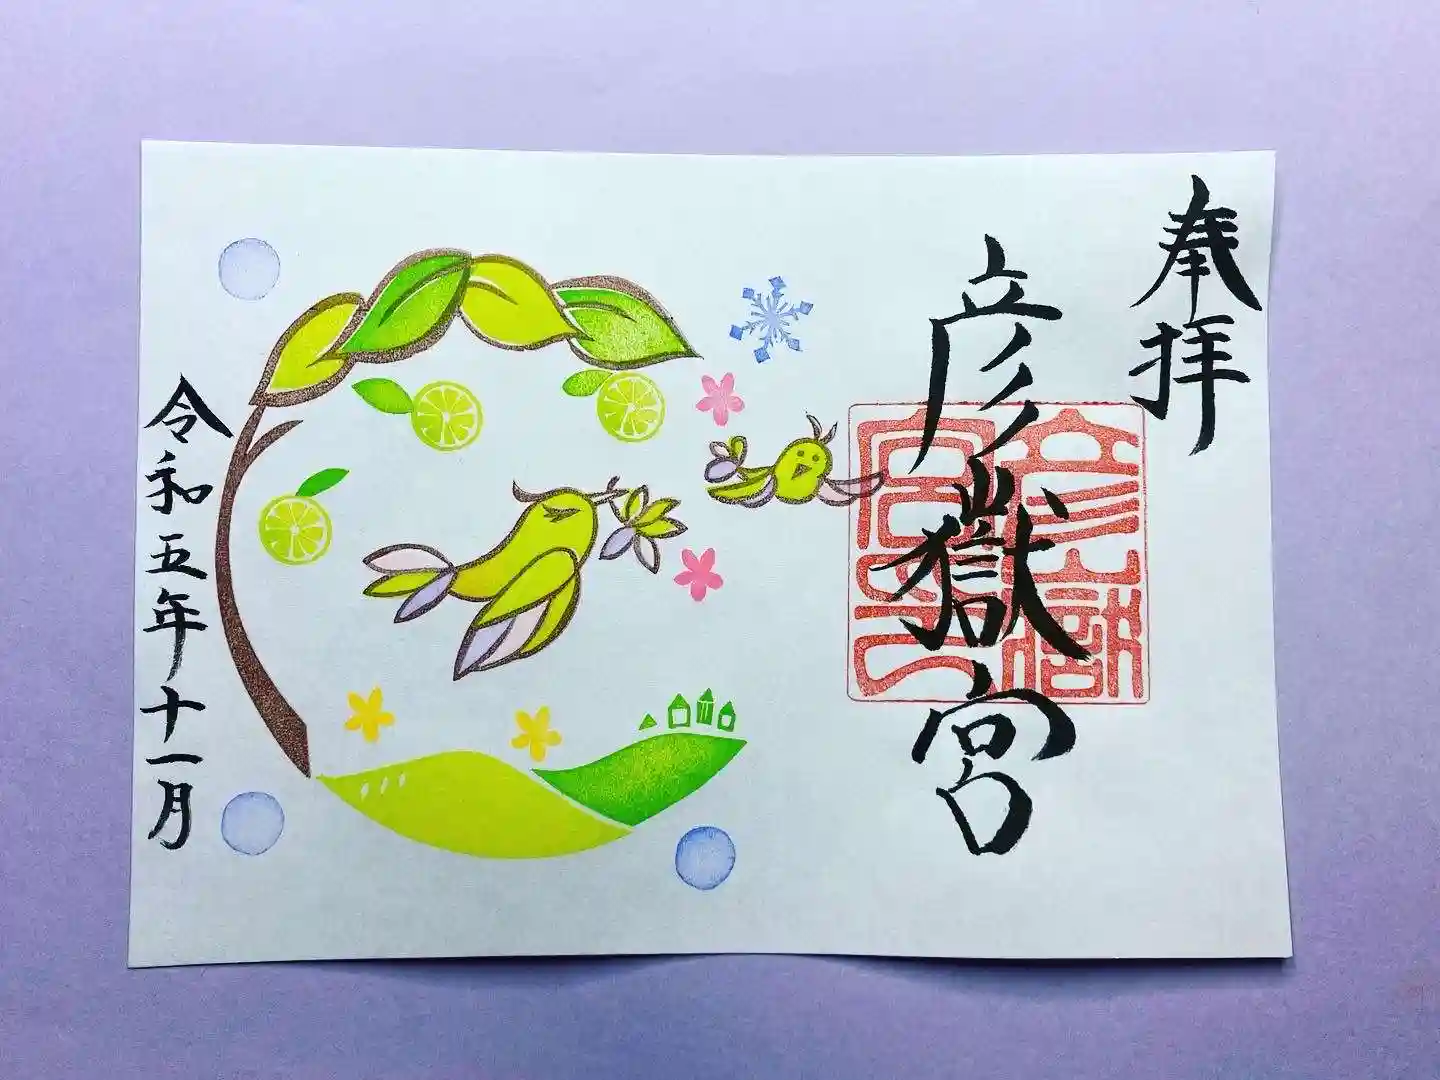 奉拝
彦嶽宮
彦嶽宮印
令和五年十一月